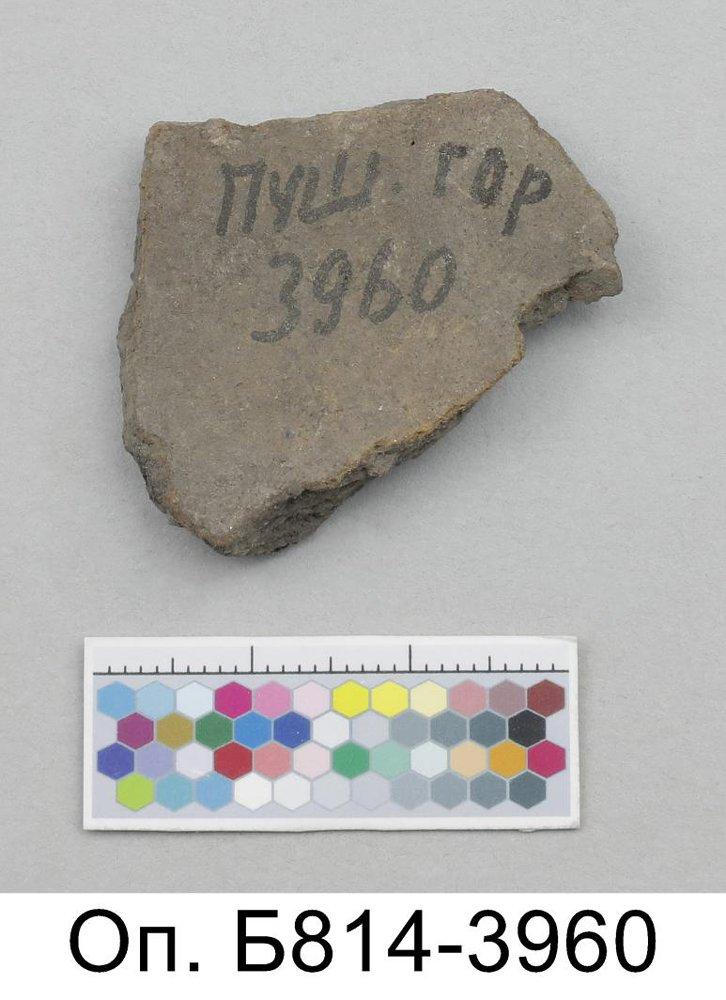 ПУШ. ГОР
3960
Оп. Б814-3960